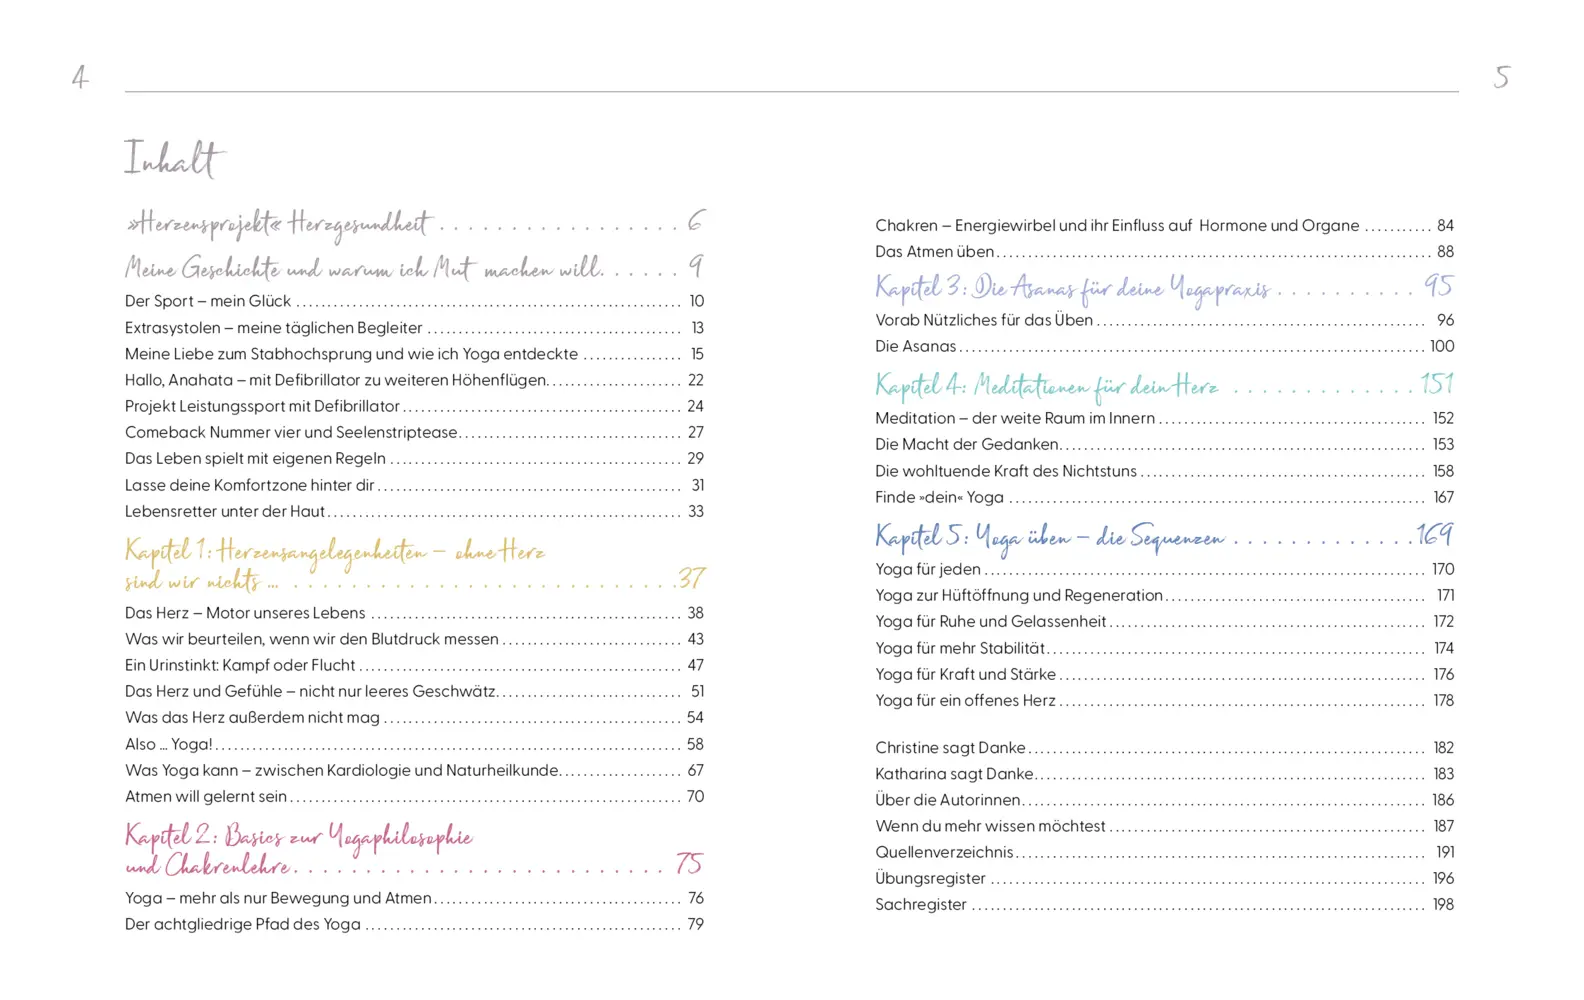 4
5
Inhalt
»Herzensprojekt« Herzgesundheit . . . . . . . . . . . . . . . . . 6
Meine Geschichte und warum ich Mut machen will. . . . . . 9
Der Sport – mein Glück ............................................................... 10
Extrasystolen – meine täglichen Begleiter .......................................... 13
Meine Liebe zum Stabhochsprung und wie ich Yoga entdeckte ................ 15
Hallo, Anahata – mit Defibrillator zu weiteren Höhenflügen...................... 22
Projekt Leistungssport mit Defibrillator.............................................. 24
Comeback Nummer vier und Seelenstriptease..................................... 27
Das Leben spielt mit eigenen Regeln ................................................ 29
Lasse deine Komfortzone hinter dir.................................................. 31
Lebensretter unter der Haut.......................................................... 33
Kapitel 1: Herzensangelegenheiten – ohne Herz
sind wir nichts ... . . . . . . . . . . . . . . . . . . . . . . . . . . . .37
Das Herz – Motor unseres Lebens ................................................... 38
Was wir beurteilen, wenn wir den Blutdruck messen.............................. 43
Ein Urinstinkt: Kampf oder Flucht..................................................... 47
Das Herz und Gefühle – nicht nur leeres Geschwätz............................... 51
Was das Herz außerdem nicht mag ................................................. 54
Also ... Yoga!............................................................................ 58
Was Yoga kann – zwischen Kardiologie und Naturheilkunde.................... 67
Atmen will gelernt sein................................................................ 70
Kapitel 2: Basics zur Yogaphilosophie
und Chakrenlehre. . . . . . . . . . . . . . . . . . . . . . . . . . 75
Yoga – mehr als nur Bewegung und Atmen......................................... 76
Der achtgliedrige Pfad des Yoga .................................................... 79
Chakren – Energiewirbel und ihr Einfluss auf Hormone und Organe ........... 84
Das Atmen üben....................................................................... 88
Kapitel 3: Die Asanas für deine Yogapraxis . . . . . . . . . . 95
Vorab Nützliches für das Üben ...................................................... 96
Die Asanas............................................................................ 100
Kapitel 4: Meditationen für dein Herz . . . . . . . . . . . . . 151
Meditation – der weite Raum im Innern ............................................ 152
Die Macht der Gedanken............................................................ 153
Die wohltuende Kraft des Nichtstuns ............................................... 158
Finde »dein« Yoga .................................................................... 167
Kapitel 5: Yoga üben – die Sequenzen . . . . . . . . . . . . .169
Yoga für jeden ........................................................................ 170
Yoga zur Hüftöffnung und Regeneration........................................... 171
Yoga für Ruhe und Gelassenheit.................................................... 172
Yoga für mehr Stabilität.............................................................. 174
Yoga für Kraft und Stärke............................................................ 176
Yoga für ein offenes Herz............................................................ 178
Christine sagt Danke................................................................. 182
Katharina sagt Danke................................................................ 183
Über die Autorinnen.................................................................. 186
Wenn du mehr wissen möchtest .................................................... 187
Quellenverzeichnis................................................................... 191
Übungsregister ....................................................................... 196
Sachregister .......................................................................... 198